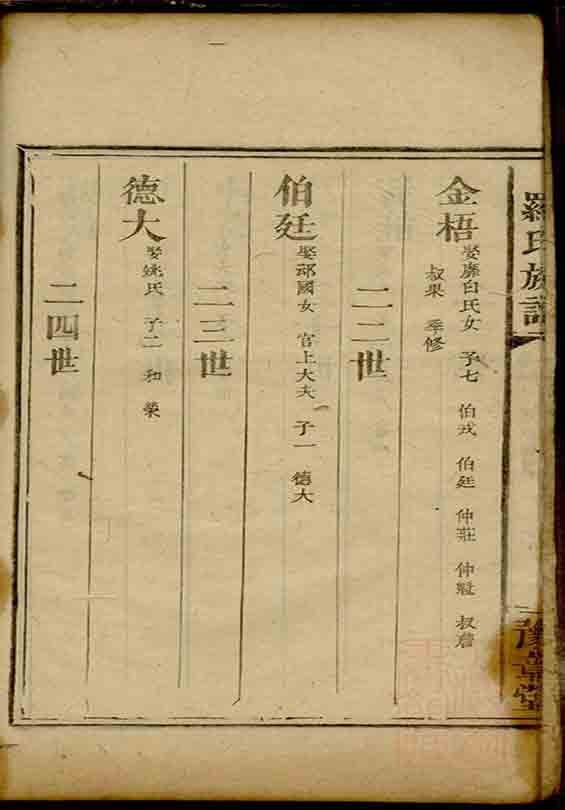 羅氏族譜
金梧 娶廉白氏女 子七 伯戎 伯廷 仲莊 仲 叔詹
叔果 季修
二二世
伯廷 娶祁國女 官上大夫 子一 德大
二三世
德大 娶姚氏 子二 和 榮
二四世
豫章堂